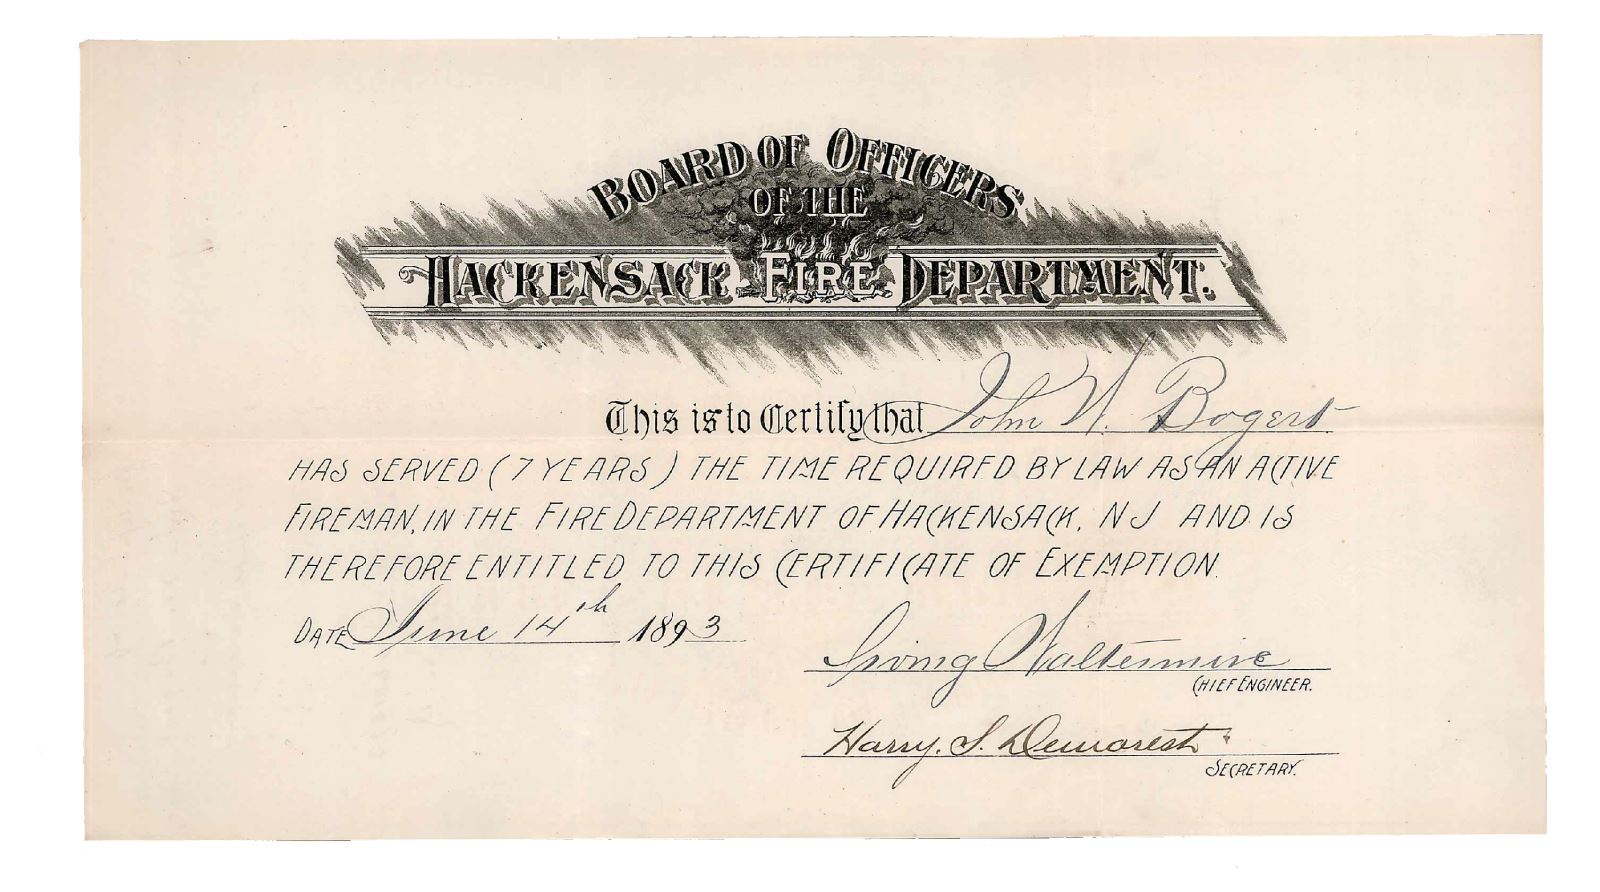 BOARD OF OFFICERS
OF THE
HACKENSACK FIRE DEPARTMENT.
This is to Certify that John W. Bogert
HAS SERVED (7 YEARS) THE TIME REQUIRED BY LAW AS AN ACTIVE
FIREMAN, IN THE FIRE DEPARTMENT OF HACKENSACK, N J AND IS
THEREFORE ENTITLED TO THIS CERTIFICATE OF EXEMPTION.
DATE June 14th 1893
Irving Waltermire
CHIEF ENGINEER.
Harry. S. Demarest
SECRETARY.